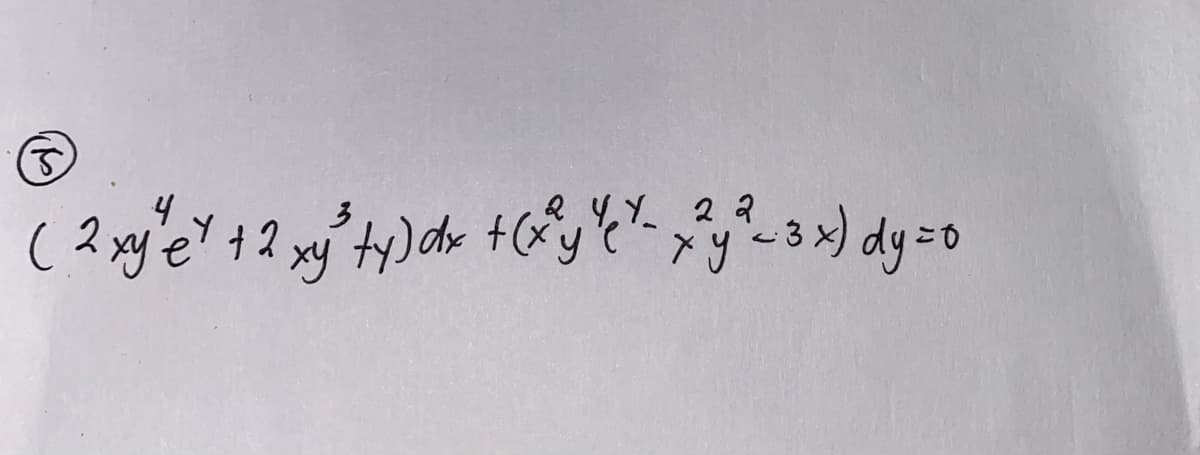 ⑤
( 2xy⁴eʸ + 2xy³ + y) dx + (x²y⁴eʸ - x²y² - 3x) dy = 0